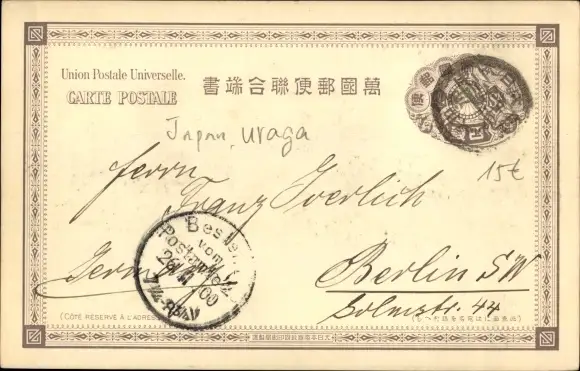 Union Postale Universelle.
CARTE POSTALE
書端合聯便郵國萬
Japan, Uraga
15€
Herrn
Franz Joerlich
Germany
Berlin SW
Solmsstr. 44
Bestellt
vom
Postamte
00
(CÔTÉ RÉSERVÉ À L'ADRESSE)